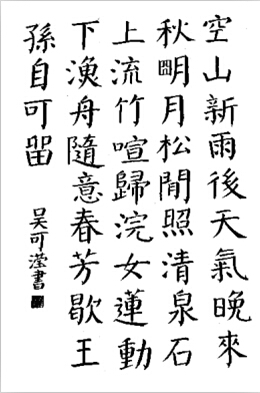 空山新雨後天氣晚來
秋朙月松閒照清泉石
上流竹喧歸浣女蓮動
下漁舟隨意春芳歇王
孫自可留
吴可滢書